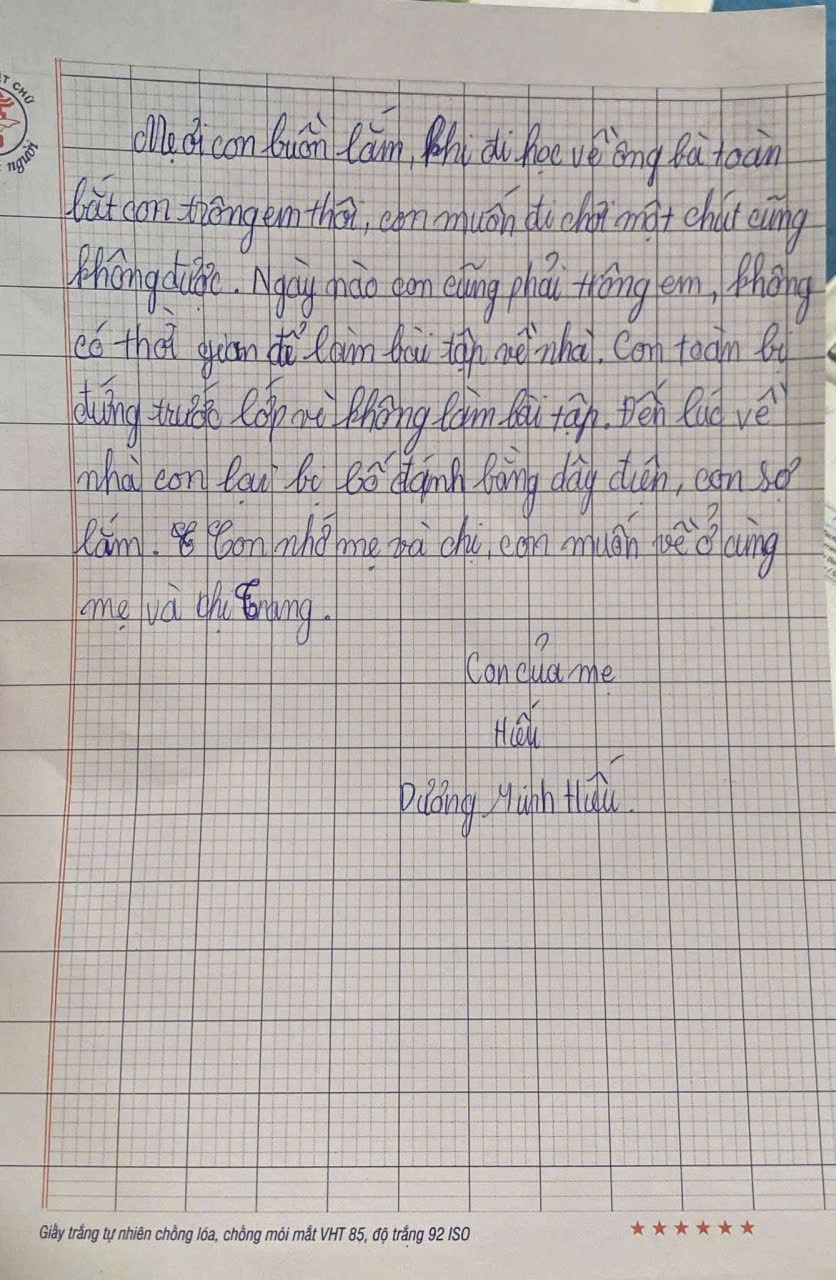 ỆT CHỮ
người
Mẹ ơi con buồn lắm, khi đi học về ông bà toàn
bắt con trông em thôi, con muốn đi chơi một chút cũng
không được. Ngày nào con cũng phải trông em, không
có thời gian để làm bài tập về nhà. Con toàn bị
đứng trước lớp vì không làm bài tập. Đến lúc về
nhà con lại bị bố đánh bằng dây điện, con sợ
lắm. Con nhớ mẹ và chị, con muốn về ở cùng
mẹ và chị Trang.
Con của mẹ
Hiếu
Dương Minh Hiếu.
Giấy trắng tự nhiên chống lóa, chống mỏi mắt VHT 85, độ trắng 92 ISO